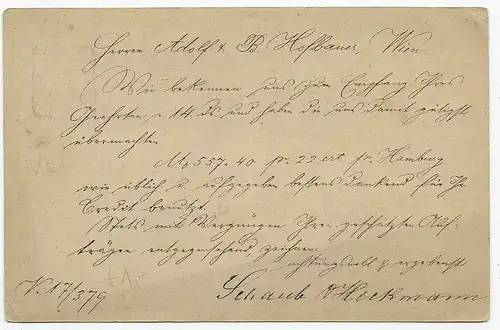 Herren Adolf & B. Hofbauer, Wien
Wir bekennen uns zum Empfang Ihres
Geehrten v. 14. ds. und haben die uns damit gütigst
übermachten
M 557.40 pr. 22 crt pr. Hamburg
wie üblich u. aufgegeben bestens dankend für Ihr
Credit benutzt.
Stets mit Vergnügen Ihren geschätzten Auf-
trägen entgegensehend zeichnen
achtungsvoll & ergebenst
V. 17/379
Schaub & Hoekmann